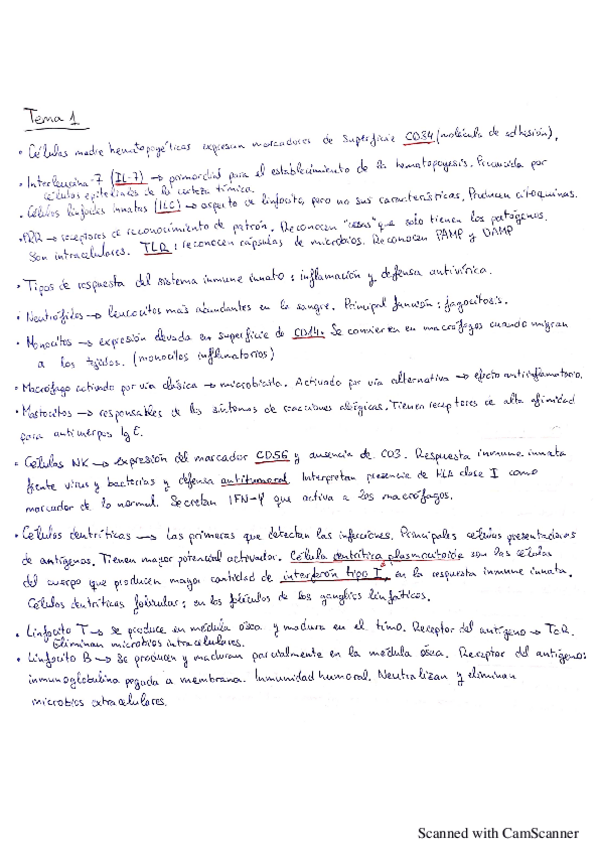 Tema 1
• Células madre hematopogéticas expresan marcadores de superficie CD34 (molécula de adhesión).
• Interleucina-7 (IL-7) → primordial para el establecimiento de la hematopogesis. Producida por
células epiteliales de la corteza tímica.
• Células linfoides innatas (ILC) → aspecto de linfocito, pero no sus características. Producen citoquinas.
• PRR → receptores de reconocimiento de patrón. Reconocen "cosas" que solo tienen los patógenos.
Son intracelulares. TLR: reconocen cápsulas de microbios. Reconocen PAMP y DAMP
• Tipos de respuesta del sistema inmune innato: inflamación y defensa antivírica.
• Neutrófilos → leucocitos más abundantes en la sangre. Principal función: fagocitosis.
• Monocitos → expresión elevada en superficie de CD14. Se convierten en macrófagos cuando migran
a los tejidos. (monocitos inflamatorios)
• Macrófago activado por vía clásica → microbicida. Activado por vía alternativa → efecto antiinflamatorio.
• Mastocitos → responsables de los síntomas de reacciones alérgicas. Tienen receptores de alta afinidad
para anticuerpos IgE.
• Células NK → expresión del marcador CD56 y ausencia de CD3. Respuesta inmune innata
frente virus y bacterias y defensa antitumoral. Interpretan presencia de HLA clase I como
marcador de lo normal. Secretan IFN-γ que activa a los macrófagos.
• Células dentríticas → Las primeras que detectan las infecciones. Principales células presentadoras
de antígenos. Tienen mayor potencial activador. Célula dentrítica plasmocitoide son las células
del cuerpo que producen mayor cantidad de interferón tipo I en la respuesta inmune innata.
Células dentríticas folicular: en los folículos de los ganglios linfáticos.
• Linfocito T → se produce en médula ósea y madura en el timo. Receptor del antígeno → TCR.
Eliminan microbios intracelulares.
• Linfocito B → Se producen y maduran parcialmente en la médula ósea. Receptor del antígeno:
inmunoglobulina pegada a membrana. Inmunidad humoral. Neutralizan y eliminan
microbios extracelulares.
Scanned with CamScanner